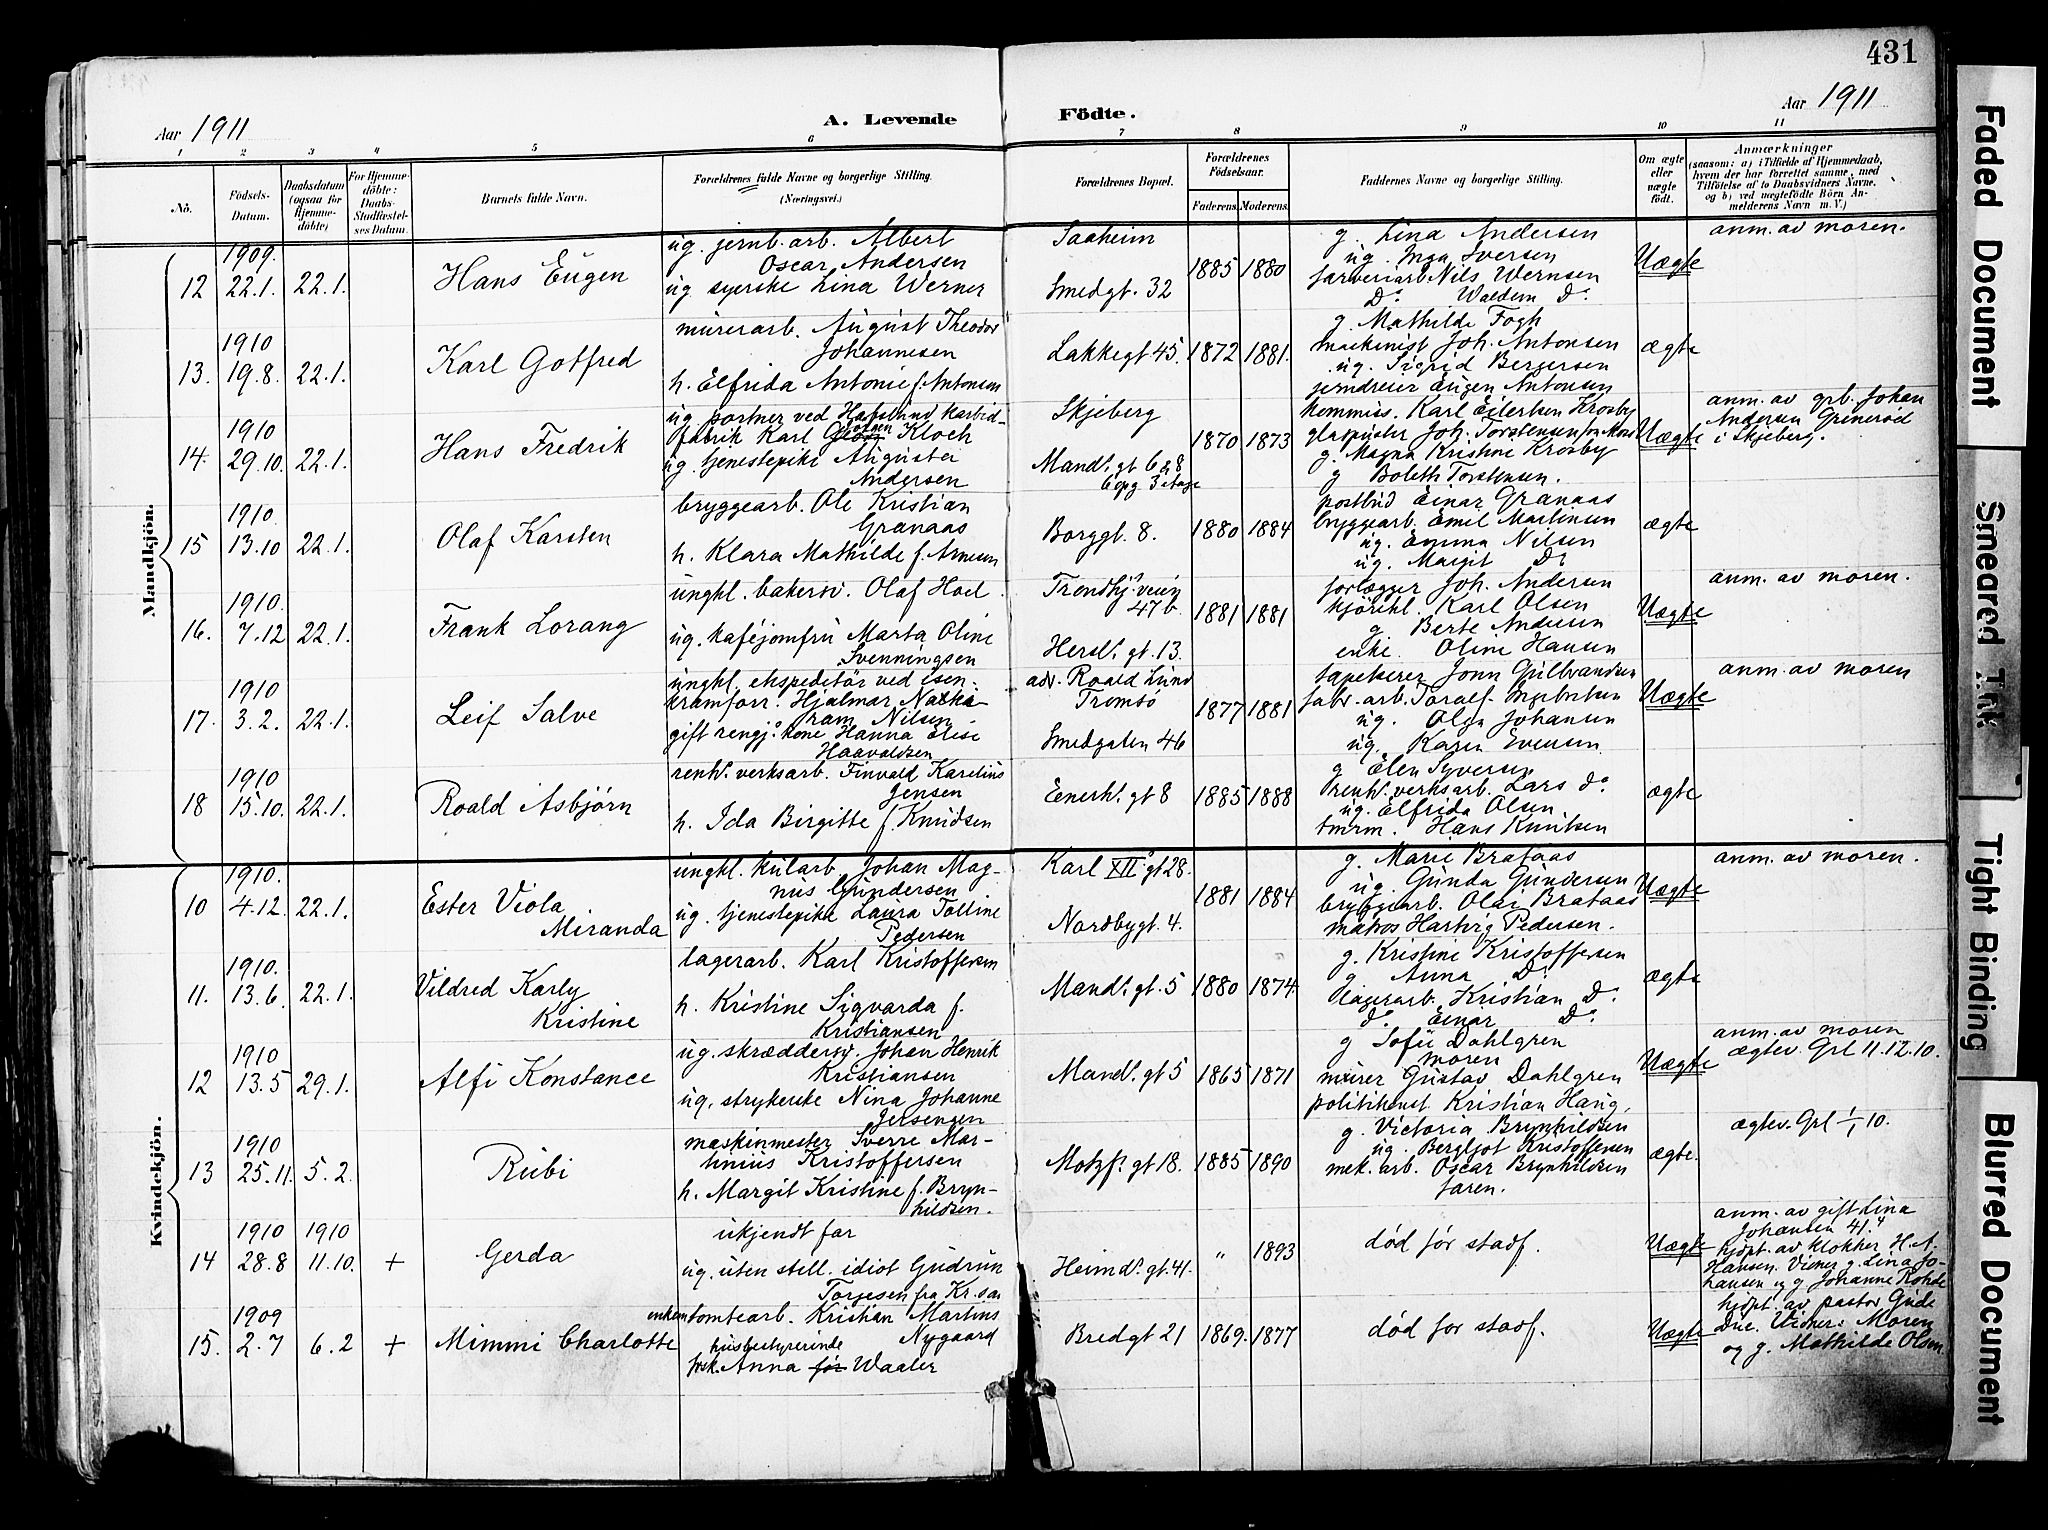 431
Aar 1911
A. Levende Födte.
Aar 1911
1 2 3 4 5 6 7 8 9 10 11
No.
Födsels-Datum.
Daabsdatum (ogsaa for Hjemmedöbte)
For Hjemmedöbte: Daabs-Stadfæstelses Datum.
Barnets fulde Navn.
Forældrenes fulde Navne og borgerlige Stilling.
(Næringsvei.)
Forældrenes Bopæl.
Forældrenes Födselsaar.
Faderens. Moderens.
Faddernes Navne og borgerlige Stilling.
Om ægte eller uægte födt.
Anmærkninger
(saasom: a) i Tilfælde af Hjemmedaab,
hvem der har forrettet samme, med
Tilföielse af to Daabsvidners Navne.
og b) ved uægtefödte Börn An-
melderens Navn m. V.)
Mandkjön.
12
1909.
22.1.
22.1.
Hans Eugen
ug. jernb.arb. Albert
Oscar Andersen
ug syerske Lina Werner
Saaheim
Smedgt. 32
1885 1880
g. Lina Andersen
ug. Inga Iversen
farveriarb Nils Wernsen
Do. Waldem Do.
Uægte
anm. av moren.
13.
1910
19.8.
22.1.
Karl Gotfred
murerarb. August Theodor
Johannesen
h. Elfrida Antonie f. Antonsen
Lakkegt 45.
1872 1881.
g. Mathilde Fogh
maskinist Joh. Antonsen
ug. Sigrid Bergersen
jerndreier Eugen Antonsen
ægte
14.
1910
29.10.
22.1.
Hans Fredrik
ug. portner ved Hafslund Karbid-
fabrik Karl Kloch
ug. tjenestepike Augusta
Andersen
Skjeberg
Mandls. gt 6 & 8
6 opg 3 etage
1870 1873
kommiss. Karl Eilertsen Krosby
glaspuster Joh. Torstensen fra Moss
g. Magna Kristine Krosby
g Boleth Torstensen.
Uægte
anm. av grb. Johan
Andersen Grinerød
i Skjeberg.
15
1910.
13.10
22.1.
Olaf Karsten
bryggearb. Ole Kristian
Granaas
h. Klara Mathilde f. Arnesen
Borggt. 8.
1880 1884
postbud Einar Granaas
bryggearb. Emil Martinsen
ug. Emma Nilsen
ug. Margit Do
ægte
16.
1910.
7.12
22.1.
Frank Lorang
ungkl. bakersv. Olaf Hoel.
ug. kaféjomfru Marta Oline
Svenningsen
Trondhj.s veien
47b.
Hersl. gt. 13.
1881 1881
forlægger Joh. Andersen
kjørekl. Karl Olsen
g Berte Andersen
enke. Oline Hansen
Uægte
anm. av moren.
17.
1910
3.2.
22.1.
Leif Salve
ungkl. ekspeditør ved isen-
kramforr. Hjalmar
Nilsen
gift rengj. kone Hanna Elise
Haavaldsen
adr. Roald Lund
Tromsö
Smedgaten 46
1877 1881
tapetserer John Gulbrandsen
fabr. arb. Toralf Ingebretsen
ug. Olga Johansen
ug. Karen Evensen
Uægte
anm. av moren
18
1910
15.10.
22.1.
Roald Asbjörn
renh. verksarb. Finvald Karelius
Jensen
h. Ida Birgitte f. Knudsen
Enerh. gt 8
1885 1888
g Elen Syversen
renh. verksarb. Lars Do
ug. Elfrida Olsen
tmrm. Hans Knutsen
ægte
Kvindekjön.
10
1910.
4.12.
22.1.
Ester Viola
Miranda
ungkl. kularb. Johan Mag-
nus Gundersen
ug. tjenestepike Laura Tolline
Pedersen
Karl XII.s gt 28.
Nordbygt. 4.
1881 1884
g. Marie Brataas
ug. Gunda Gundersen
bryggearb. Olai Brataas
matros Hartvig Pedersen.
Uægte
anm. av moren.
11.
1910.
13.6.
22.1.
Vildred Karly
Kristine
lagerarb. Karl Kristoffersen
h. Kristine Sigvarda f.
Kristiansen
Mandls. gt. 5
1880 1874.
g. Kristine Kristoffersen
g Anna Do.
lagerarb. Kristian Do.
do. Einar Do.
ægte
12
1910
13.5
29.1.
Alfi Konstance
ug. skræddersv. Johan Henrik
Kristiansen
ug. strykerske Nina Johanne
Jensen
Mandls. gt 5
1865 1871
g Sofie Dahlgren
moren
murer Gustav Dahlgren
politikonst. Kristian Haug.
Uægte
anm. av moren
ægtev. Grl 11.12.10.
13
1910
25.11.
5.2.
Rubi
maskinmester Sverre Mar-
Kristoffersen
h. Margit Kristine f. Bryn-
hildsen.
Motzf. gt 18.
1885 1890
g. Victoria Brynhildsen
ug. Bergljot Kristoffersen
mek. arb. Oscar Brynhildsen
faren.
ægte.
ægtev. Grl 1/1 10.
14
1910
28.8
1910
11.10.
+
Gerda
ukjendt far
ug. uten still. idiot Gudrun
Torjesen fra Kr.sa
Heimd. gt. 41.
" 1893
død før stadf.
Uægte
anm. av gift Lina
Johansen 41.4
hjdpt. av klokker H. A.
Hansen. Vidner g. Lina Jo-
hansen og g. Johanne Rohde
15.
1909
2.7
6.2
+
Mimmi Charlotte
enkem tomtearb. Kristian Martins
Nygaard
husbestyrerinde
frsk. Anna Waaler
Bredgt 21
1869. 1877
død før stadf.
Uægte
hjdpt. av pastor Gude
Due. Vidner: Moren
og g. Mathilde Olsen.
Faded Document
Smeared Ink
Tight Binding
Blurred Document